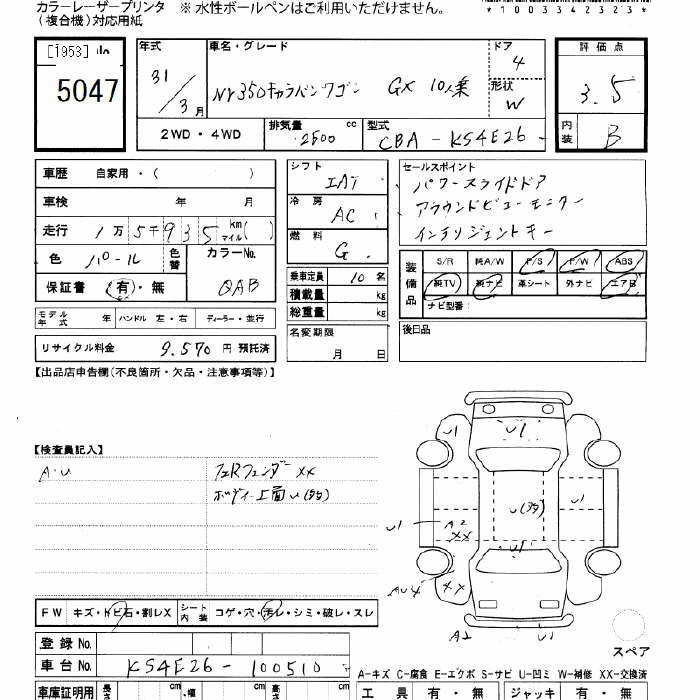 カラーレーザープリンタ ※ 水性ボールペンはご利用いただけません。
(複合機)対応用紙
*1003342323*
[1953]
5047
年式 31/3月
車名・グレード NV350キャラバンワゴン GX 10人乗
ドア 4
形状 W
評価点 3.5
内装 B
2WD・4WD
排気量 2500 cc
型式 CBA-KS4E26-
車歴 自家用・( )
車検 年 月
走行 1万5千935 km マイル( )
色 パール 色替
カラーNo. QAB
保証書 有・無
モデル年式 年 ハンドル 左・右 ディーラー・並行
リサイクル料金 9,570 円 預託済
シフト IAT
冷房 AC
燃料 G
乗車定員 10 名
積載量 kg
総重量 kg
名変期限 月 日
セールスポイント
パワースライドドア
アラウンドビューモニター
インテリジェントキー
装備品 S/R 純A/W P/S P/W ABS
純TV 純ナビ 革シート 外ナビ エアB
ナビ型番:
後日品
【出品店申告欄(不良箇所・欠品・注意事項等)】
【検査員記入】
A・U
左Rフェンダー XX
ボディー上面 U(多タ)
U1
U1
U1
U(多タ)
U1
A2
XX
U1
AU4
XX
A2
U1
スペア
FW キズ・トビ石・割レX シート内装 コゲ・穴・汚レ・シミ・破レ・スレ
登録No.
車台No. KS4E26-100510
A-キズ C-腐食 E-エクボ S-サビ U-凹ミ W-補修 XX-交換済
車庫証明用 長さ cm 幅 cm cm
工具 有・無 ジャッキ 有・無